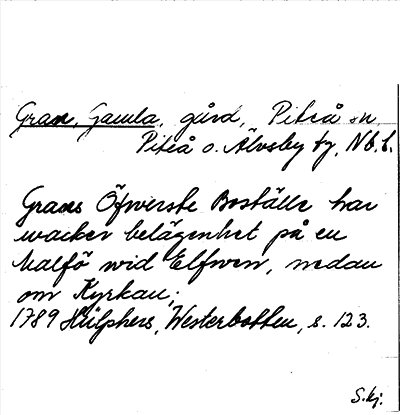 Gran, Gamla, gård, Piteå sn,
Piteå o. Älvsby tg, Nb. l.
Grans Öfwerste Boställe har
wacker belägenhet på en
Malfö wid Elfwen, nedan
om Kyrkan;
1789 Hülphers, Westerbotten, s. 123.
S.kj.